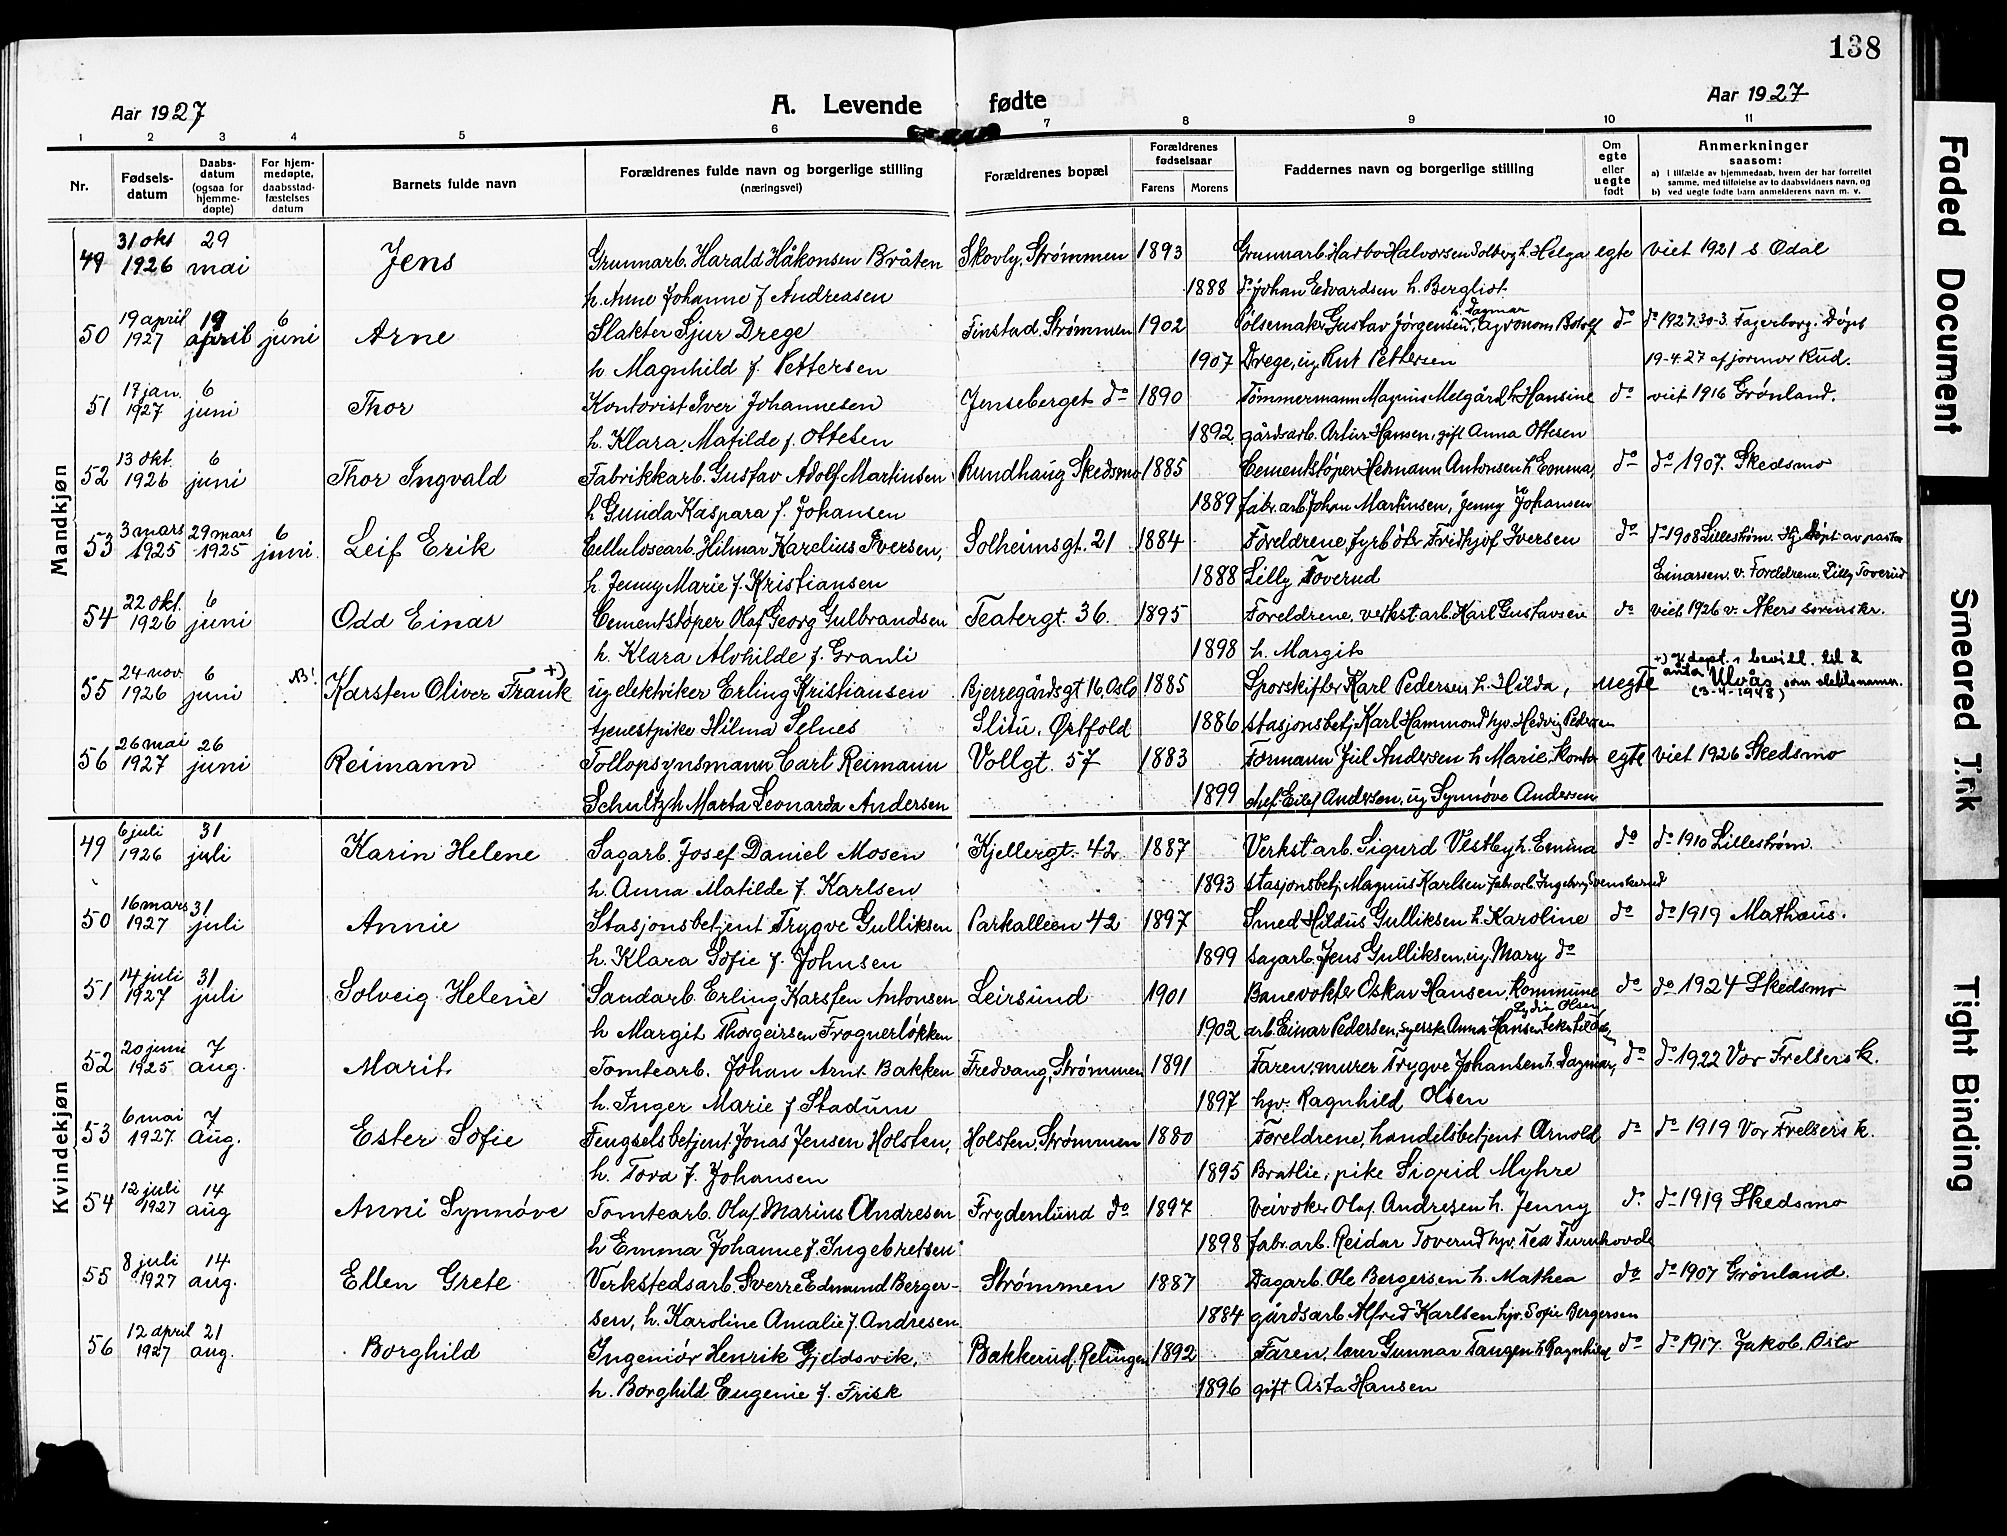 138
Aar 1927
A. Levende fødte
Aar 1927
1 2 3 4 5 6 7 8 9 10 11
Nr.
Fødsels-
datum
Daabs-
datum
(ogsaa for
hjemme-
døpte)
For hjem-
medøpte,
daabsstad-
fæstelses
datum
Barnets fulde navn
Forældrenes fulde navn og borgerlige stilling
(næringsvei)
Forældrenes bopæl
Forældrenes
fødselsaar
Farens Morens
Faddernes navn og borgerlige stilling
Om
egte
eller
uegte
født
Anmerkninger
saasom:
a) i tilfælde av hjemmedaab, hvem der har forrettet
samme, med tilføielse av to daabsvidners navn, og
b) ved uegte fødte barn anmelderens navn m. v.
Mandkjøn
49 31 okt 1926 29 mai Jens Grunnarb. Harald Håkonsen Bråten Skovly, Strømmen 1893 Grunnarb. Halvorsen Solberg h. Helga egte viet 1921 s Odal
h. Anne Johanne f Andreasen 1888 do Johan Edvardsen h. Bergliot
50 19 april 1927 19 april 6 juni Arne Slakter Sjur Drege Tinstad, Strømmen 1902 Pølsemaker Gustav Jörgensen, h. Dagmar, agronom Botolf do do 1927.30-3. Fagerborg. Døpt
h Magnhild f. Pettersen 1907 Drege, ug. Rut Pettersen 19-4-27 af jormor Rud.
51 17 jan. 1927 6 juni Thor Kontorist Iver Johannesen Jenseberget do 1890 Tømmermann Magnus Melgård h Hansine do viet 1916 Grønland.
h. Klara Matilde f. Ottesen 1892 gårdsarb. Artur Hansen, gift Anna Ottesen
52 13 okt. 1926 6 juni Thor Ingvald Fabrikkarb. Gustav Adolf Martinsen Rundhaug Skedsmo 1885 Cementstøper Hermann Antonsen h. Emma, do do 1907. Skedsmo
h Gunda Kaspara f. Johansen 1889 fabr. arb Johan Martinsen, Jenny Johansen
53 3 mars 1925 29 mars 1925 6 juni Leif Erik Cellulosearb. Hilmar Karelius Iversen, Solheimsgt. 21 1884 Foreldrene, fyrbøter Fridtjof Iversen do do 1908 Lillestrøm. Hj. døpt av pastor
h. Jenny Marie f. Kristiansen 1888 Lilly Toverud Einarsen v. Foreldrene. Lilly Toverud
54 22 okt. 1926 6 juni Odd Einar Cementstøper Olaf Georg Gulbrandsen Teatergt. 36. 1895 Foreldrene, verkst. arb. Karl Gustavsen do viet 1926 v. Akers sorenskr.
h. Klara Alvhilde f. Granli 1898 h. Margit
55 24 nov. 1926 6 juni Karsten Oliver Frank +) ug elektriker Erling Kristiansen Bjerregårdsgt 16, Oslo 1885 Sporskifter Karl Pedersen h. Hilda, uegte +) J. dept.s bevill. til å
anta Ulvås som slektsnavn.
(3-4-1948)
tjenestpike Hilma Selnes Slitu, Østfold 1886 stasjonsbetj. Karl Hammond hjv. Hedvig Pedersen
56 26 mai 1927 26 juni Reimann Tollopsynsmann Carl Reimann Vollgt. 57 1883 Formann Juel Andersen h Marie, kontor egte viet 1926 Skedsmo
Schultz h Marta Leonarda Andersen 1899 chef Eilef Andersen, ug Synnøve Andersen
Kvindekjøn
49 6 juli 1926 31 juli Karin Helene Sagarb. Josef Daniel Mosen Kjellergt. 42 1887 Verkst arb. Sigurd Vestby h. Emma do do 1910 Lillestrøm.
h. Anna Matilde f. Karlsen 1893 stasjonsbetj. Magnus Karlsen fabr arb. Ingeborg Svenskerud
50 16 mars 1927 31 juli Annie Stasjonsbetjent Trygve Gulliksen Parkalleen 42 1897 Smed Hildus Gulliksen h. Karoline do do 1919 Mathæus.
h. Klara Sofie f. Johnsen 1899 sagarb. Jens Gulliksen, ug Mary do
51 14 juli 1927 31 juli Solveig Helene Sandarb. Erling Karsten Antonsen Leirsund 1901 Banevokter Oskar Hansen, kommune do do 1924 Skedsmo
h Margit Thorgeirsen Frognerløkken 1902 arb. Einar Pedersen, syerske Anna Hansen, Lydia Olsen
52 20 juni 1925 7 aug. Marit Tomtearb. Johan Arnt Bakken Fredvang, Strømmen 1891 Faren, murer Trygve Johansen h. Dagmar, do do 1922 Vor Frelsers k.
h. Inger Marie f Stadum 1897 hjv. Ragnhild Olsen
53 6 mai 1927. 7 aug. Ester Sofie Fengselsbetjent Jonas Jensen Holsten, Holsten, Strømmen 1880 Foreldrene, handelsbetjent Arnold do do 1919 Vor Frelsers k.
h. Tora f. Johansen 1895 Bratlie, pike Sigrid Myhre
54 12 juli 1927 14 aug Anni Synnøve Tomtearb. Olaf Marius Andresen Frydenlund do 1897 Veivokter Olaf Andresen h. Jenny do do 1919 Skedsmo
h Emma Johanne f. Ingebretsen 1898 fabr. arb. Reidar Toverud hjv. Tea Furuhovde
55 8 juli 1927 14 aug. Ellen Grete Verkstedsarb. Sverre Edmund Berger- Strømmen 1887 Dagarb. Ole Bergersen h. Mathea do do 1907 Grønland.
sen, h. Karoline Amalie f. Andresen 1884 gårdsarb Alfred Karlsen hjv. Sofie Bergersen
56 12 april 1927 21 aug. Borghild Ingeniør Henrik Gjeldsvik, Bakkerud, Relingen 1892 Faren, lærer Gunnar Tangen h Ragnhild do do 1917. Jakob. Oslo
h. Borghild Eugenie f. Frisk 1896 gift Asta Hansen
Faded Document
Smeared Ink
Tight Binding